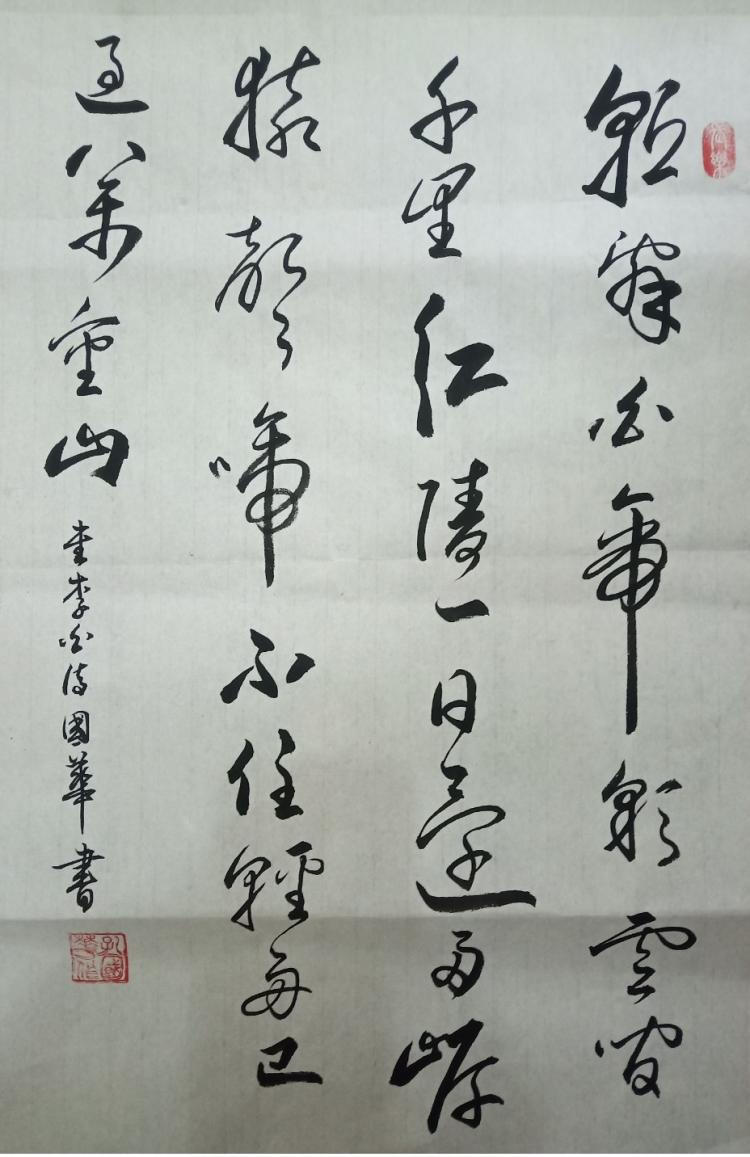 朝辭白帝彩雲間
千里江陵一日還兩岸
猿聲啼不住輕舟已
過萬重山
李白詩國華書
孔國華